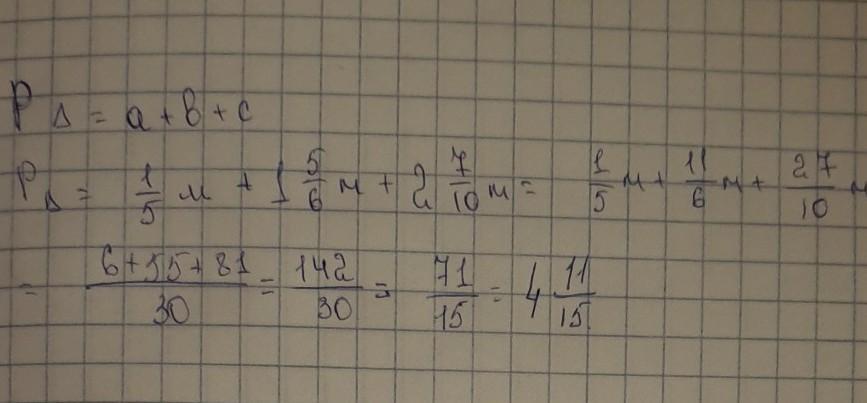 P Δ = a + b + c
P Δ = 1/5 м + 1 5/6 м + 2 7/10 м = 1/5 м + 11/6 м + 27/10 м
= (6+55+81)/30 = 142/30 = 71/15 = 4 11/15